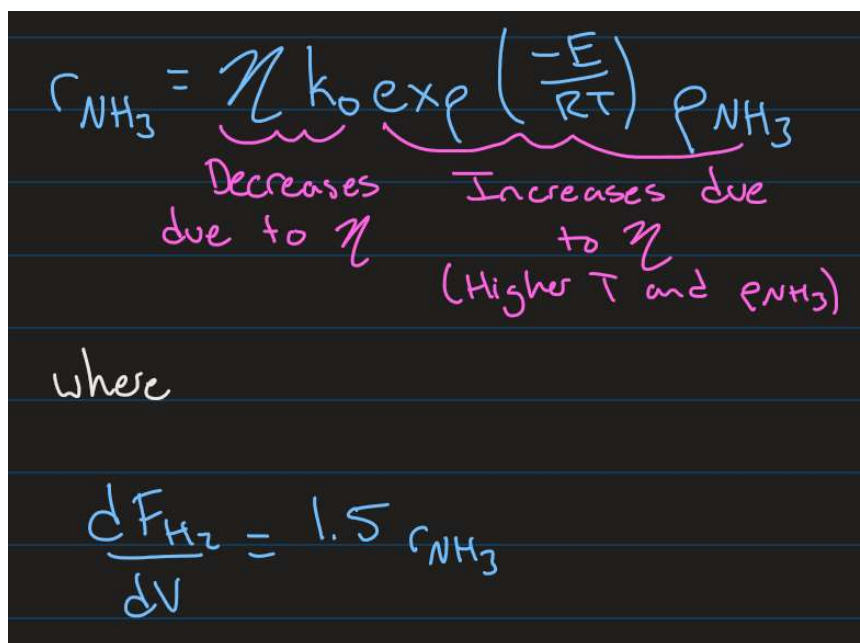 r_NH₃ = η k₀ exp (-E/RT) ρ_NH₃
Decreases Increases due
due to η to η
(Higher T and ρ_NH₃)
where
dF_H₂/dV = 1.5 r_NH₃